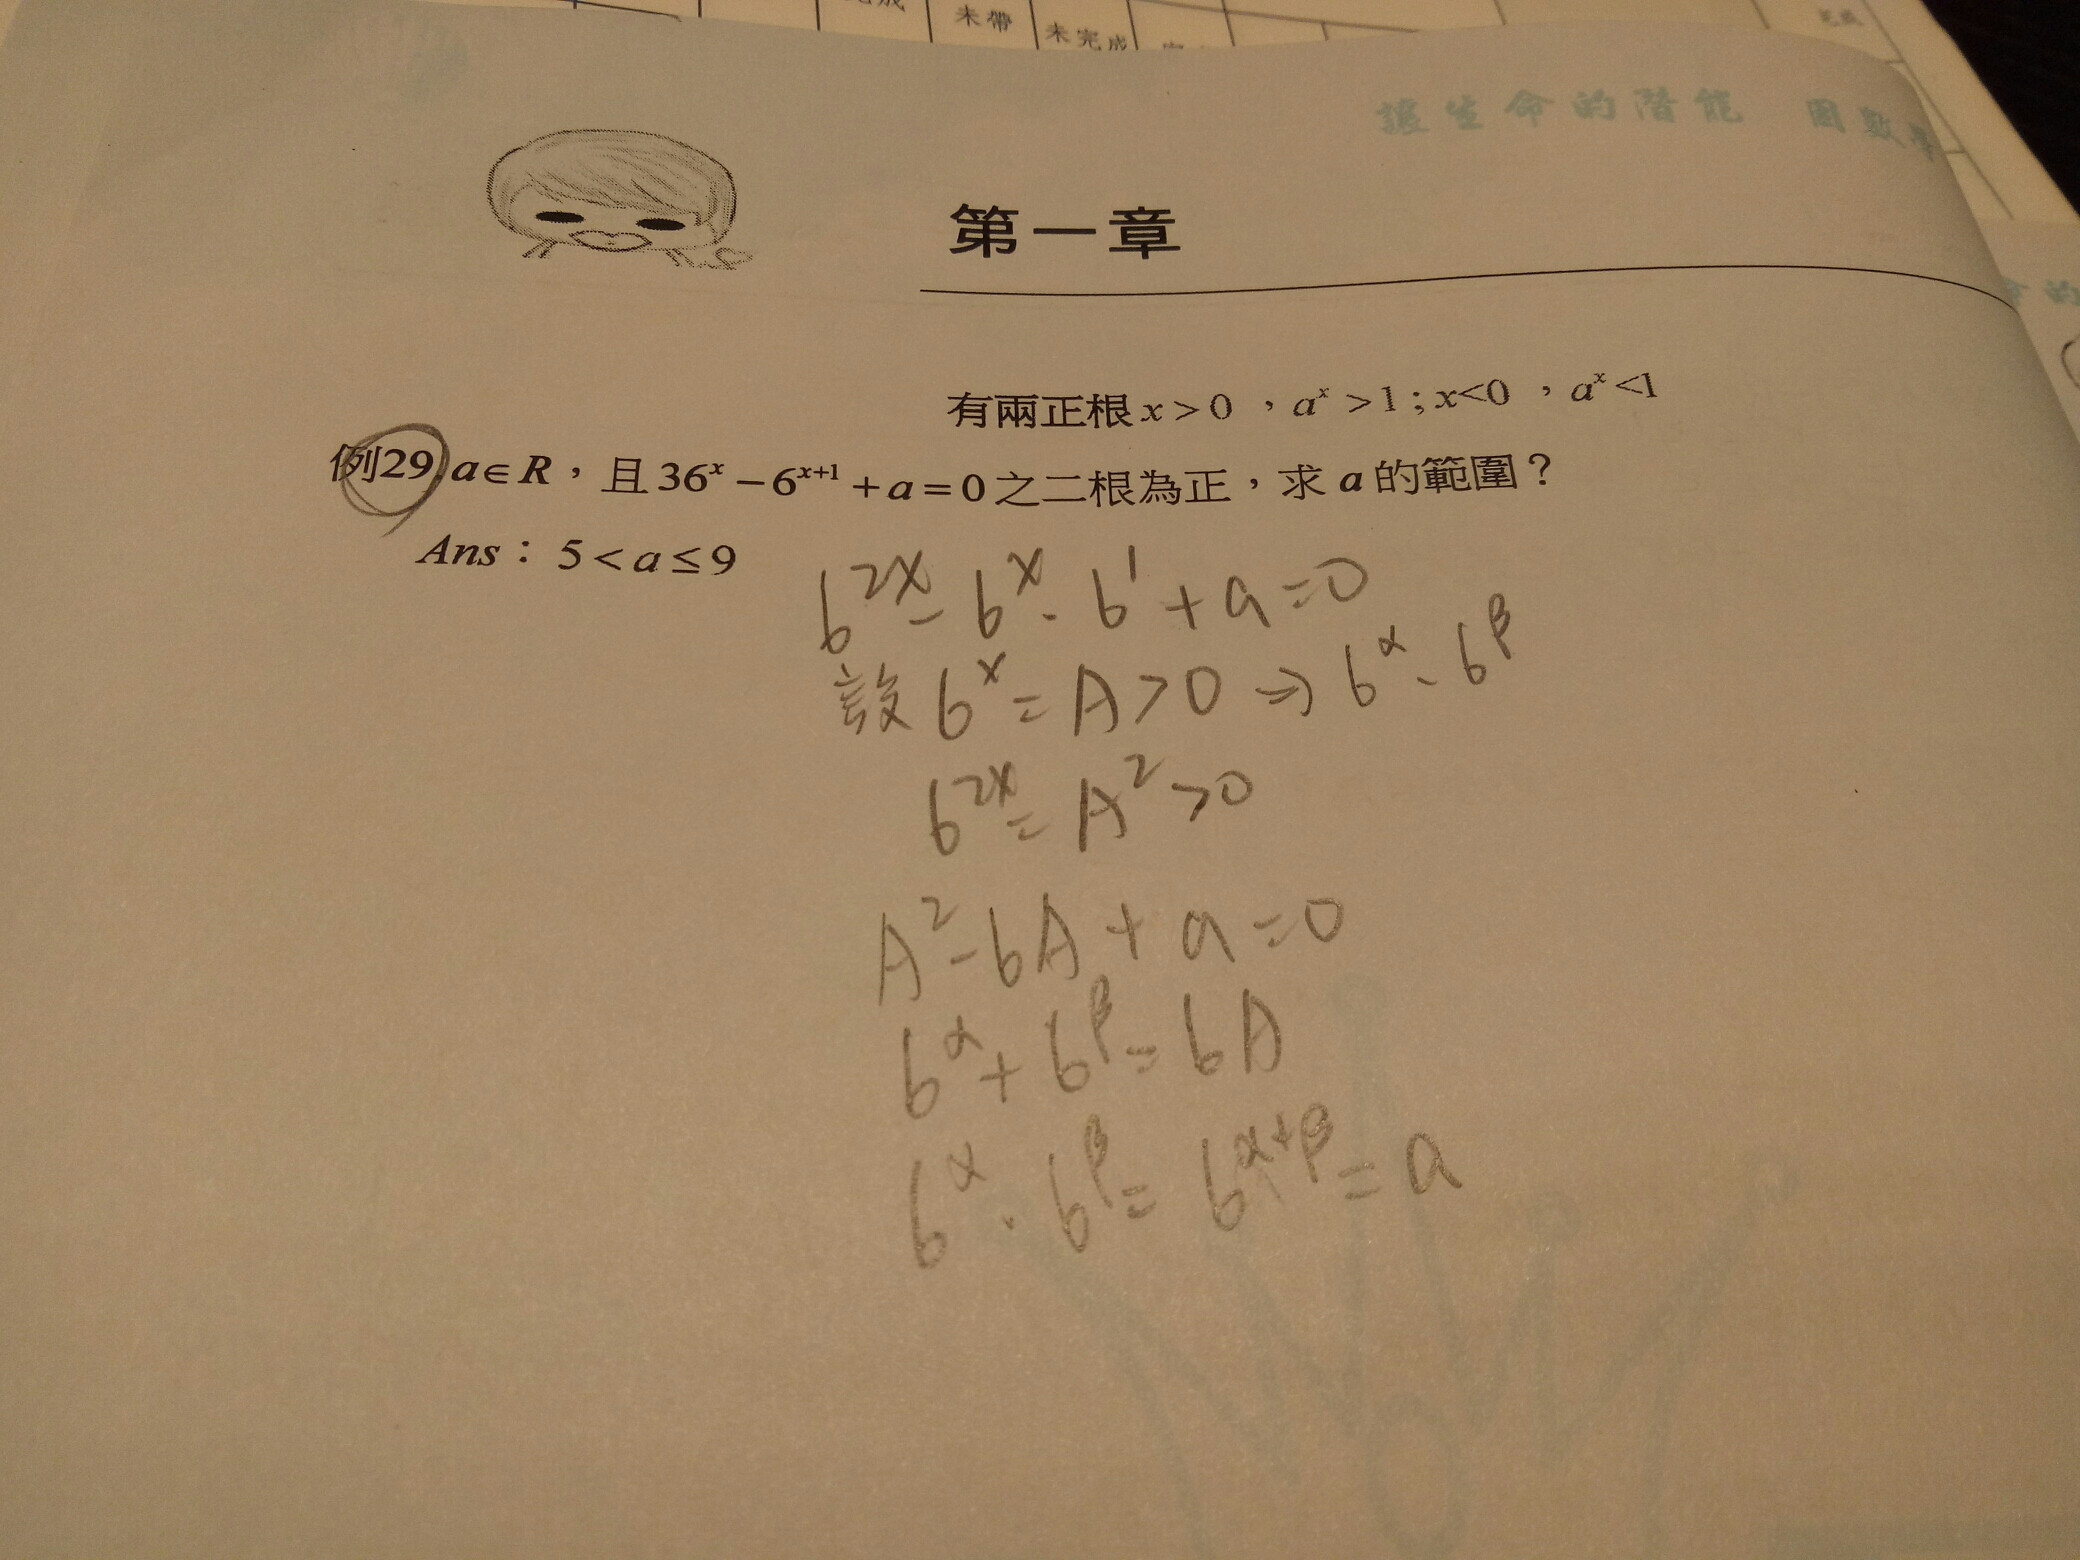 未帶
未完成
完成
讓生命的潛能 因數學
第一章
有兩正根 x > 0 , aˣ > 1 ; x<0 , aˣ <1
例29. a∈R,且 36ˣ − 6ˣ⁺¹ + a = 0 之二根為正,求 a 的範圍?
Ans: 5 < a ≤ 9
6²ˣ - 6ˣ · 6¹ + a = 0
設 6ˣ = A > 0 ⇒ 6^α - 6^β
6²ˣ = A² > 0
A² - 6A + a = 0
6^α + 6^β = 6A
6^α · 6^β = 6^(α+β) = a